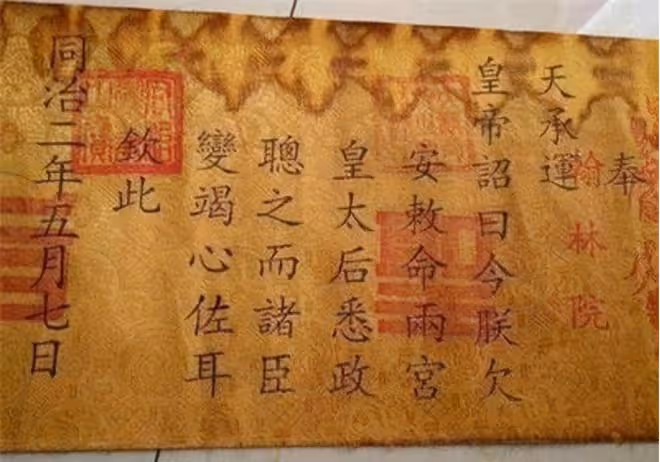 奉
天承運
皇帝詔曰今朕欠
安敕命兩宮
皇太后悉政
聰之而諸臣
變竭心佐耳
欽此
同治二年五月七日
翰林院